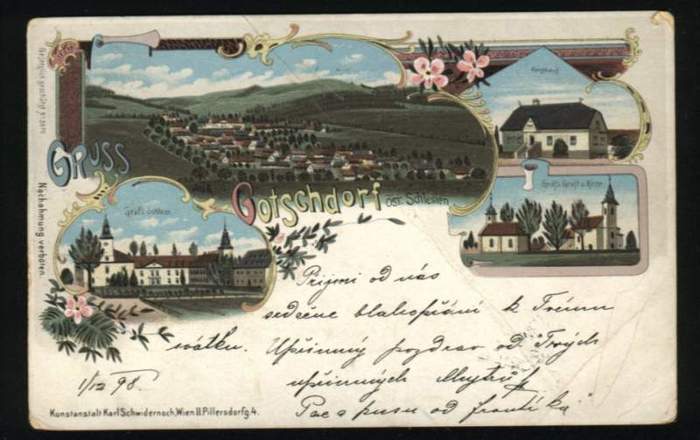 GRUSS
Gotschdorf
öst. Schlesien
Gräfl. Schloss
Gräfl. Gruft u. Kirche
Nachahmung verboten.
Přijmi od nás
srdečné blahopřání k Tvému
svátku. Upřímný pozdrav od Tvých
upřímných
Pac a pusu od
1/12 98.
Kunstanstalt Karl Schwidernoch, Wien II. Pillersdorfg. 4.